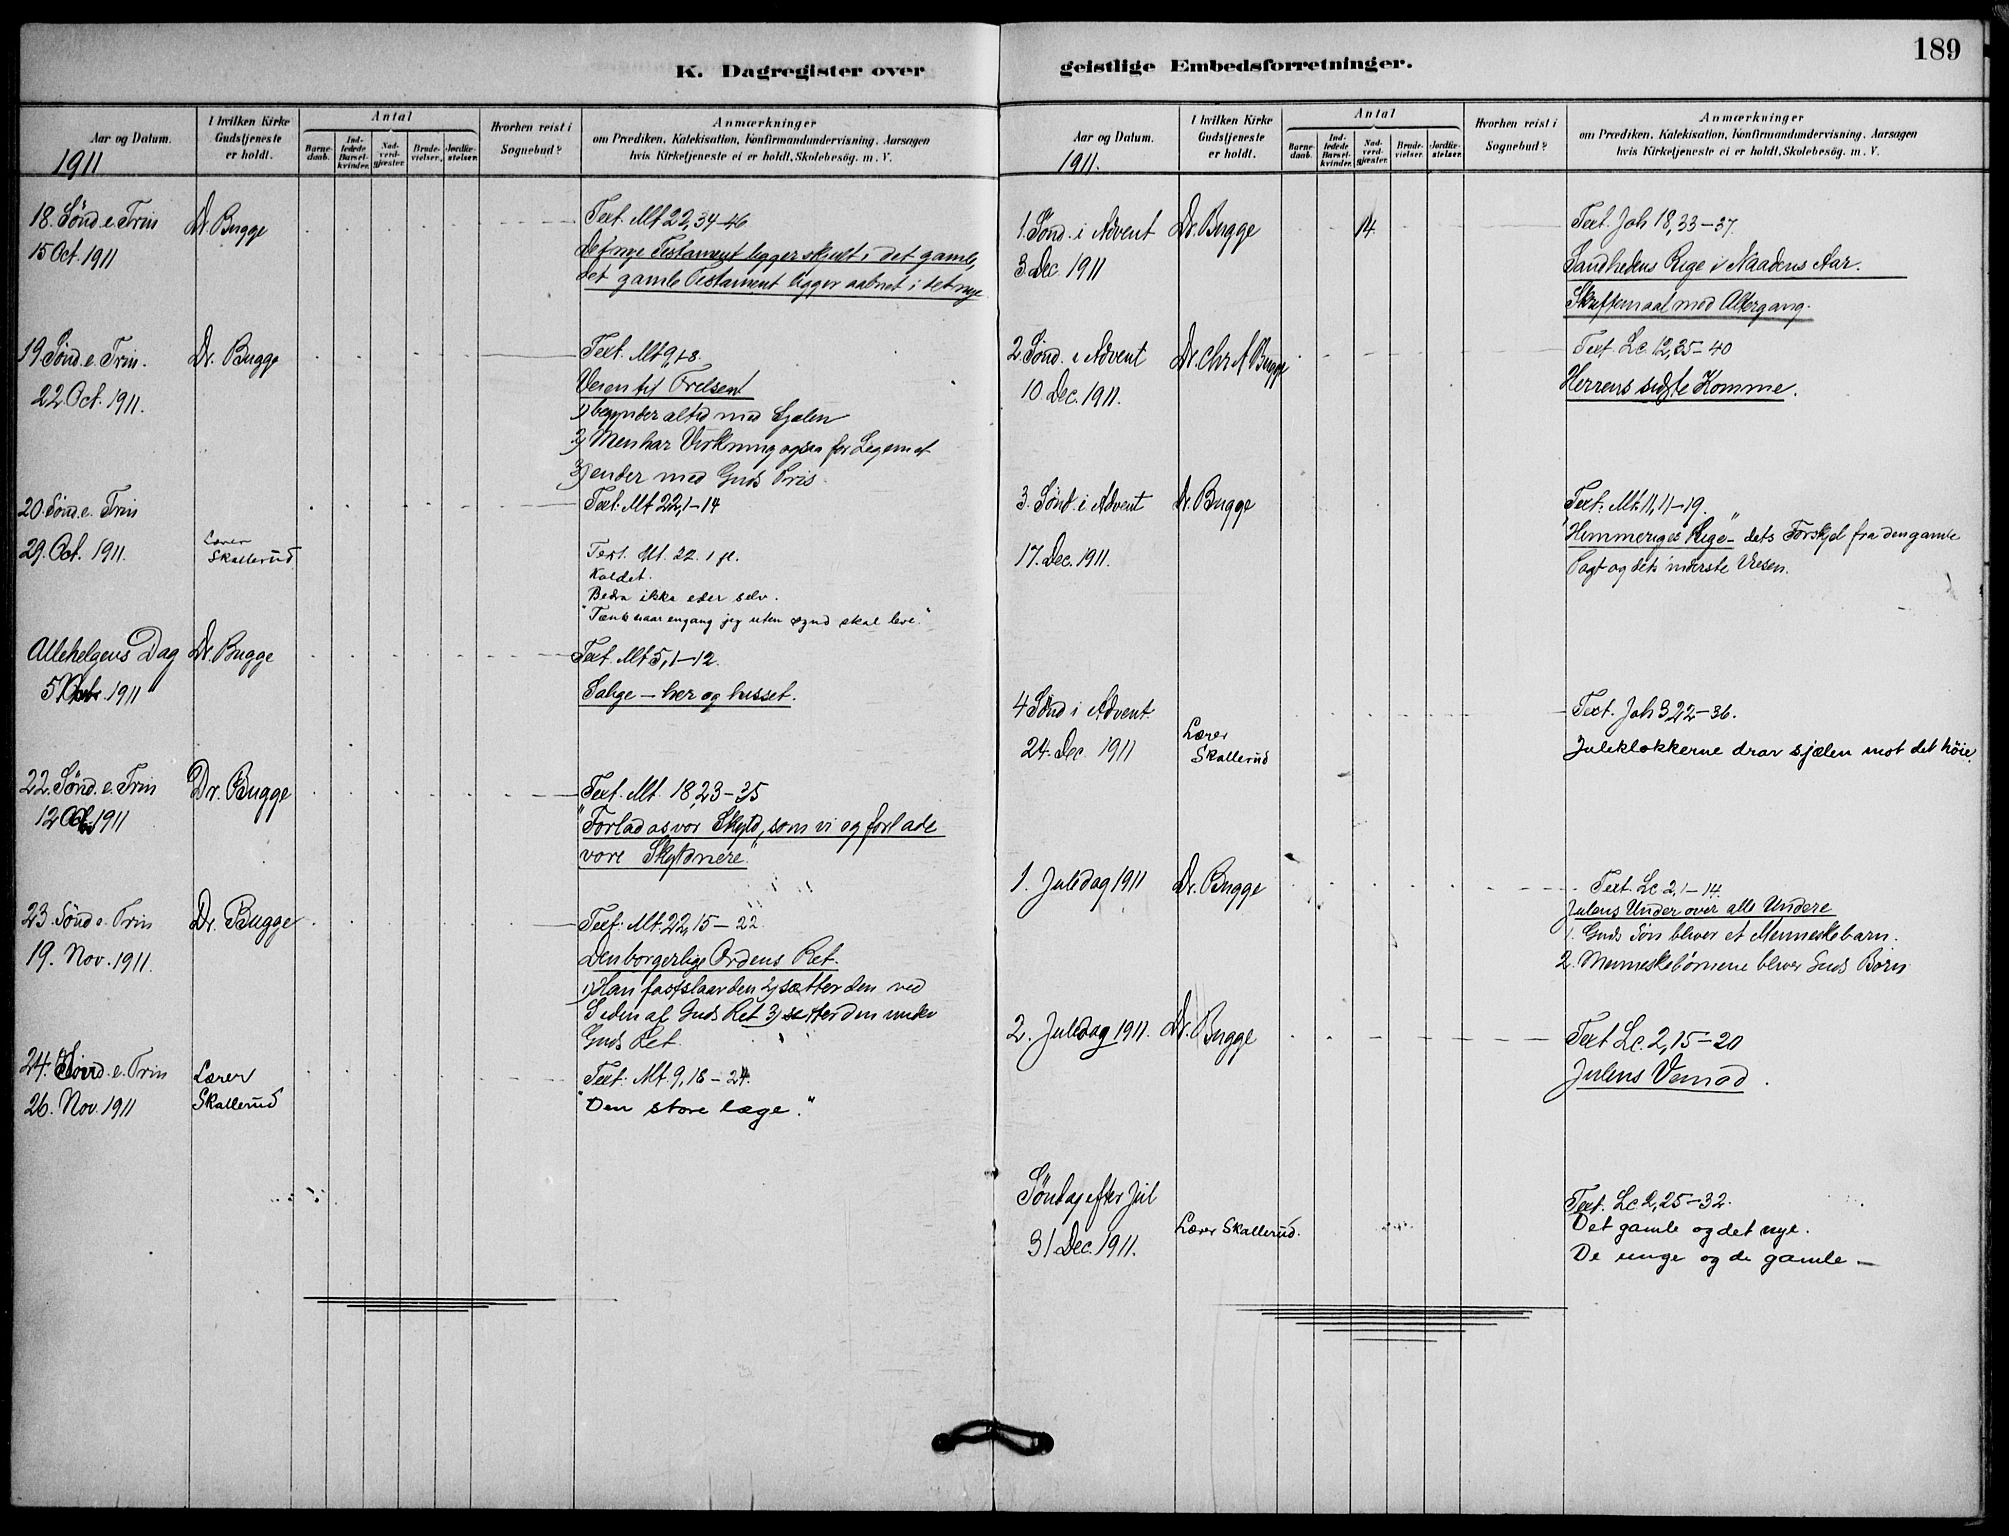 189
K. Dagregister over
geistlige Embedsforretninger.
Aar og Datum.
I hvilken Kirke
Gudstjeneste
er holdt.
Antal
Barne-
daab.
Ind-
ledede
Barsel-
kvinder.
Nad-
verd-
gjæster.
Brude-
vielser.
Jordfæ-
stelser.
Hvorhen reist i
Sognebud?
Anmærkninger
om Prædiken, Katekisation, Konfirmandundervisning, Aarsagen
hvis Kirketjeneste ei er holdt, Skolebesøg. m. V.
1911
18. Sønd. e. Trin
15 Oct. 1911
Dr. Bugge
Text. Mt 22,34-46
Det nye Testament ligger skult i det gamle,
det gamle Testament ligger aabnet i det nye
19 Sønd. e. Trin.
22 Oct. 1911.
Dr. Bugge
Text. Mt 9,1-8.
Veien til Frelsen
1) begynder altid med Sjælen
2) Men har Virkning ogsaa for Legemet
3) ender med Guds Pris.
20. Sønd. e. Trin
29. Oct. 1911.
Lærer
Skallerud
Text: Mt 22,1-14
Text. Mt. 22. 1 fl.
Kaldet.
Bedra ikke eder selv.
"Tænk naar engang jeg uten synd skal leve."
Allehelgens Dag
5 1911
Dr. Bugge
Text. Mt 5,1-12.
Salige - her og hisset.
22. Sønd. e. Trin
12 1911
Dr. Bugge
Text. Mt. 18,23-35
"Forlad os vor Skyld, som vi og forlade
vore Skyldnere."
23. Sønd e. Trin
19. Nov. 1911.
Dr. Bugge
Text: Mt. 22,15-22
Den borgerlige Ordens Ret.
1) Han fastslaar den 2) sætter den ved
Siden af Guds Ret 3) sætter den under
Guds Ret.
24. Sønd. e. Trin
26. Nov. 1911
Lærer
Skallerud
Text: Mt. 9,18-24.
"Den store læge."
Aar og Datum.
I hvilken Kirke
Gudstjeneste
er holdt.
Antal
Barne-
daab.
Ind-
ledede
Barsel-
kvinder.
Nad-
verd-
gjæster.
Brude-
vielser.
Jordfæ-
stelser.
Hvorhen reist i
Sognebud?
Anmærkninger
om Prædiken, Katekisation, Konfirmandundervisning, Aarsagen
hvis Kirketjeneste ei er holdt, Skolebesøg. m. V.
1911.
1. Sønd. i Advent
3 Dec. 1911
Dr. Bugge
14
Text. Joh 18,33-37.
Sandhedens Rige i Naadens Aar.
Skriftemaal med Altergang.
2. Sønd. i Advent
10 Dec. 1911.
Dr. Chr A Bugge
Text. Lc. 12,35-40
Herrens sidste Komme.
3. Sønd. i Advent
17. Dec. 1911.
Dr. Bugge
Text: Mt. 11,11-19.
"Himmeriges Rige" - dets Forskjel fra den gamle
Pagt og dets inderste Væsen.
4 Sønd i Advent
24. Dec. 1911
Lærer
Skallerud
Text. Joh 3,22-36.
Juleklokkerne drar sjælen mot det høie.
1. Juledag 1911
Dr. Bugge
Text. Lc 2,1-14.
Julens Under over alle Undere
1. Guds Søn bliver et Menneskebarn.
2. Menneskebørnene bliver Guds Børn
2. Juledag 1911.
Dr. Bugge
Text Lc. 2,15-20
Julens Vemod.
Søndag efter Jul
31 Dec. 1911.
Lærer Skallerud.
Text. Lc 2,25-32.
Det gamle og det nye.
De unge og de gamle -